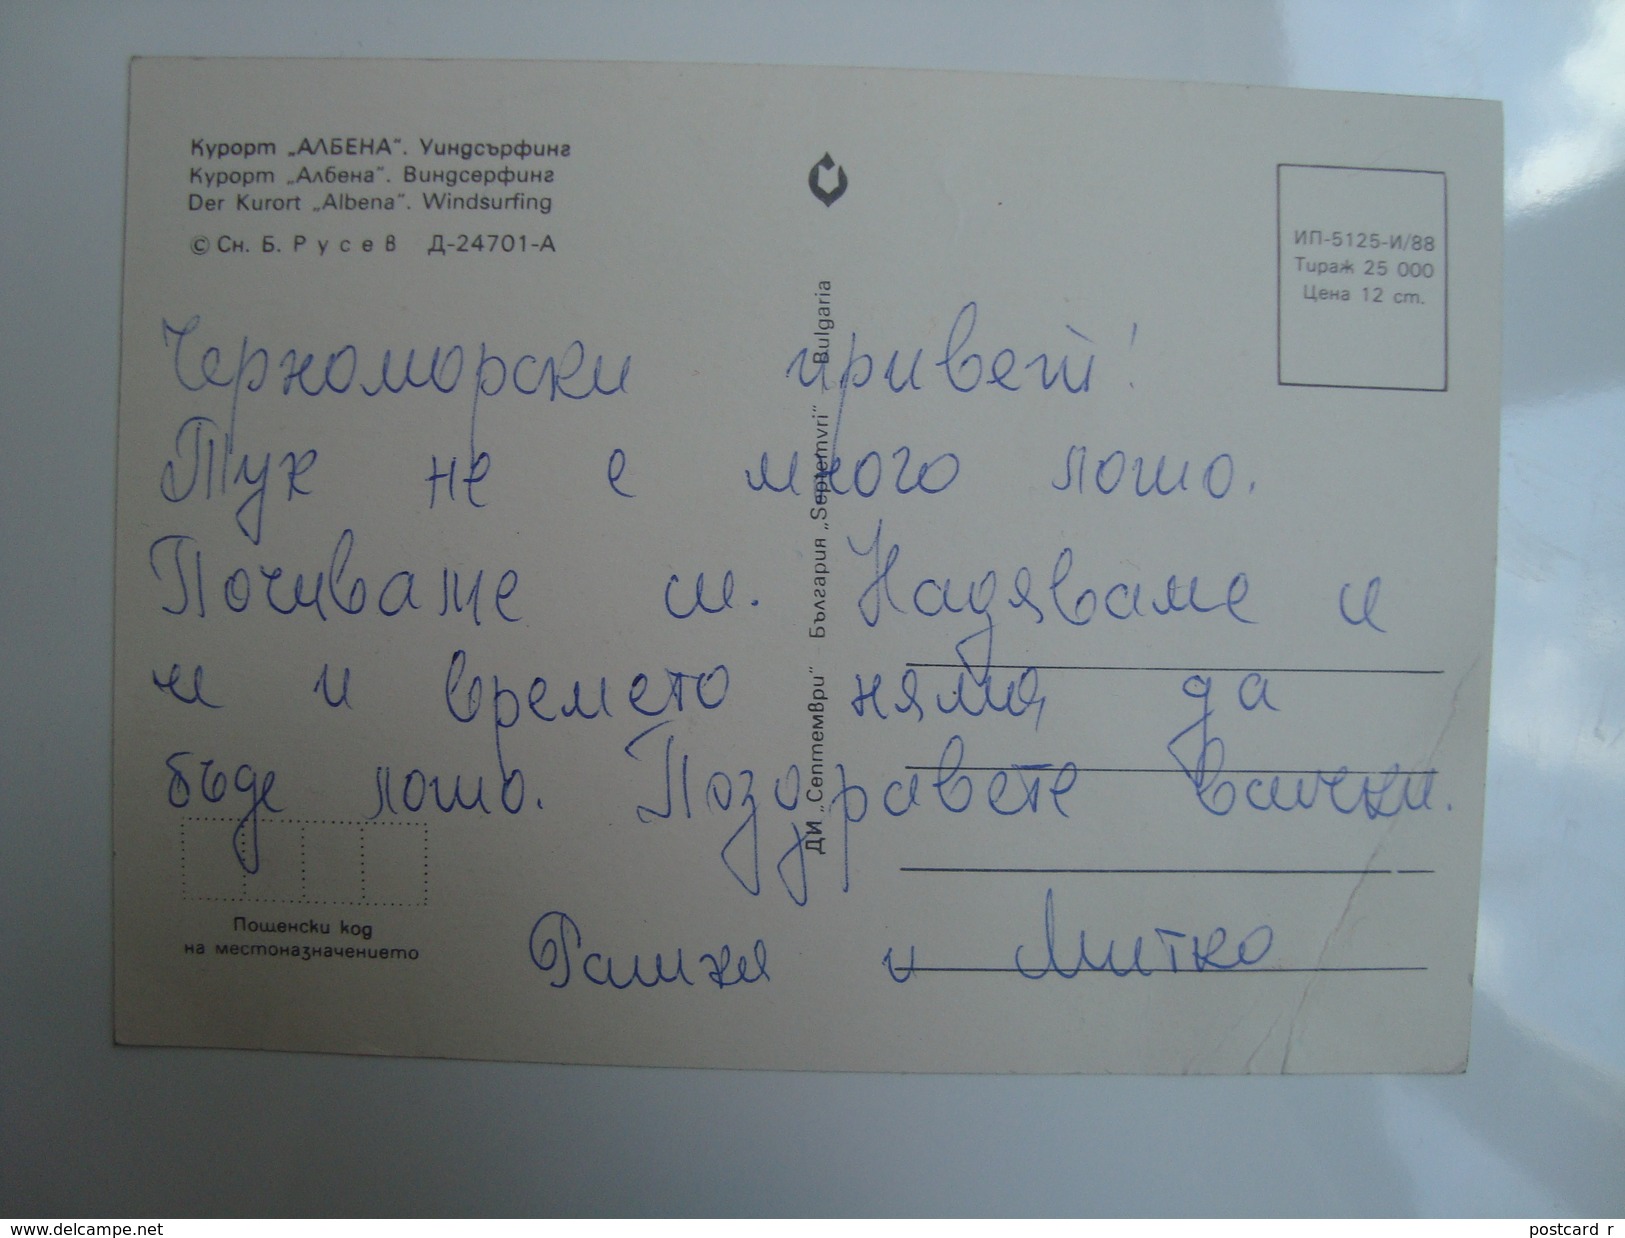 Курорт „АЛБЕНА". Уиндсърфинг
Курорт „Албена". Виндсерфинг
Der Kurort „Albena". Windsurfing
© Сн. Б. Русев Д-24701-А
ИП-5125-И/88
Тираж 25 000
Цена 12 ст.
ДИ „Септември" - България „Septemvri" - Bulgaria
Черноморски привет!
Тук не е много лошо.
Почиваме си. Надяваме се
че и времето няма да
бъде лошо. Поздравете всички.
и Митко
Пощенски код
на местоназначението
www.delcampe.net
postcard r